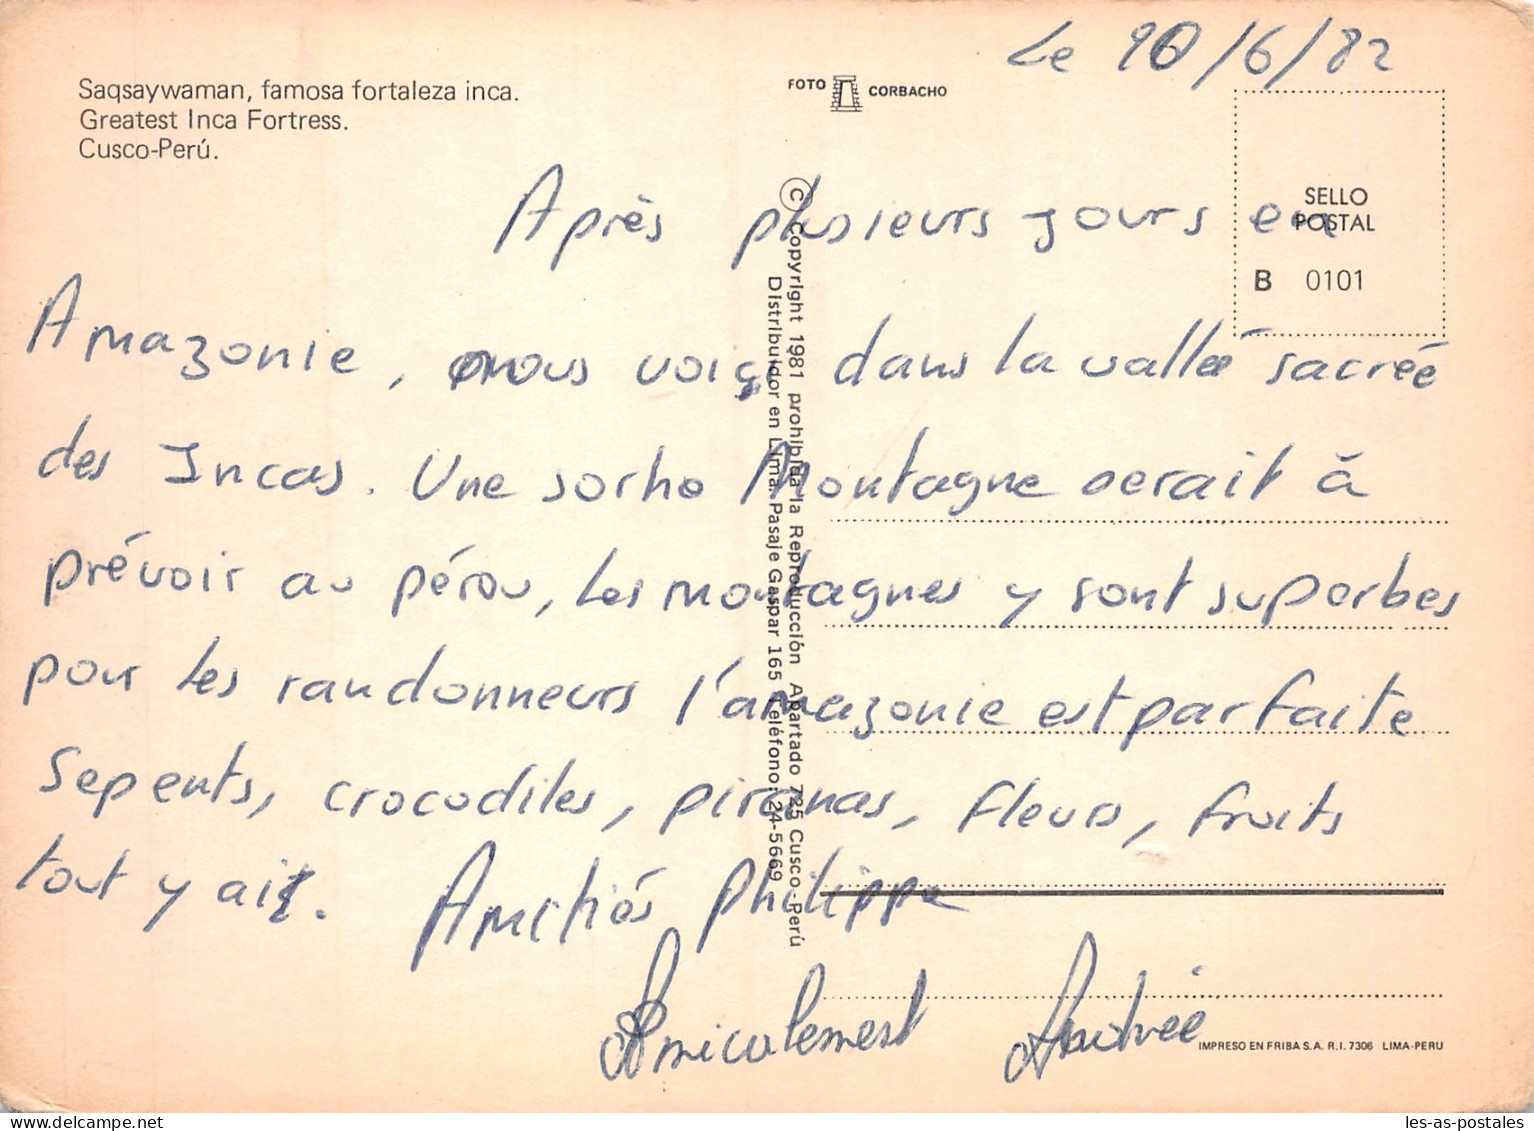 Le 10/6/82
Saqsaywaman, famosa fortaleza inca.
Greatest Inca Fortress.
Cusco-Perú.
FOTO CORBACHO
SELLO
POSTAL
B 0101
© Copyright 1981 prohibida la Reproducción Apartado 725 Cusco-Perú
Distribuidor en Lima: Pasaje Gaspar 165 Teléfono: 24-5669
Après plusieurs jours en
Amazonie, nous voiçi dans la vallée sacrée
des Incas. Une sortie Montagne serait à
prévoir au pérou, les montagnes y sont superbes
pour les randonneurs l'amazonie est parfaite
Sepents, crocodiles, piranas, fleurs, fruits
tout y ait.
Amitiés Philippe
Amicalement Andrée
IMPRESO EN FRIBA S.A. R.I. 7306 LIMA-PERU
les-as-postales.com